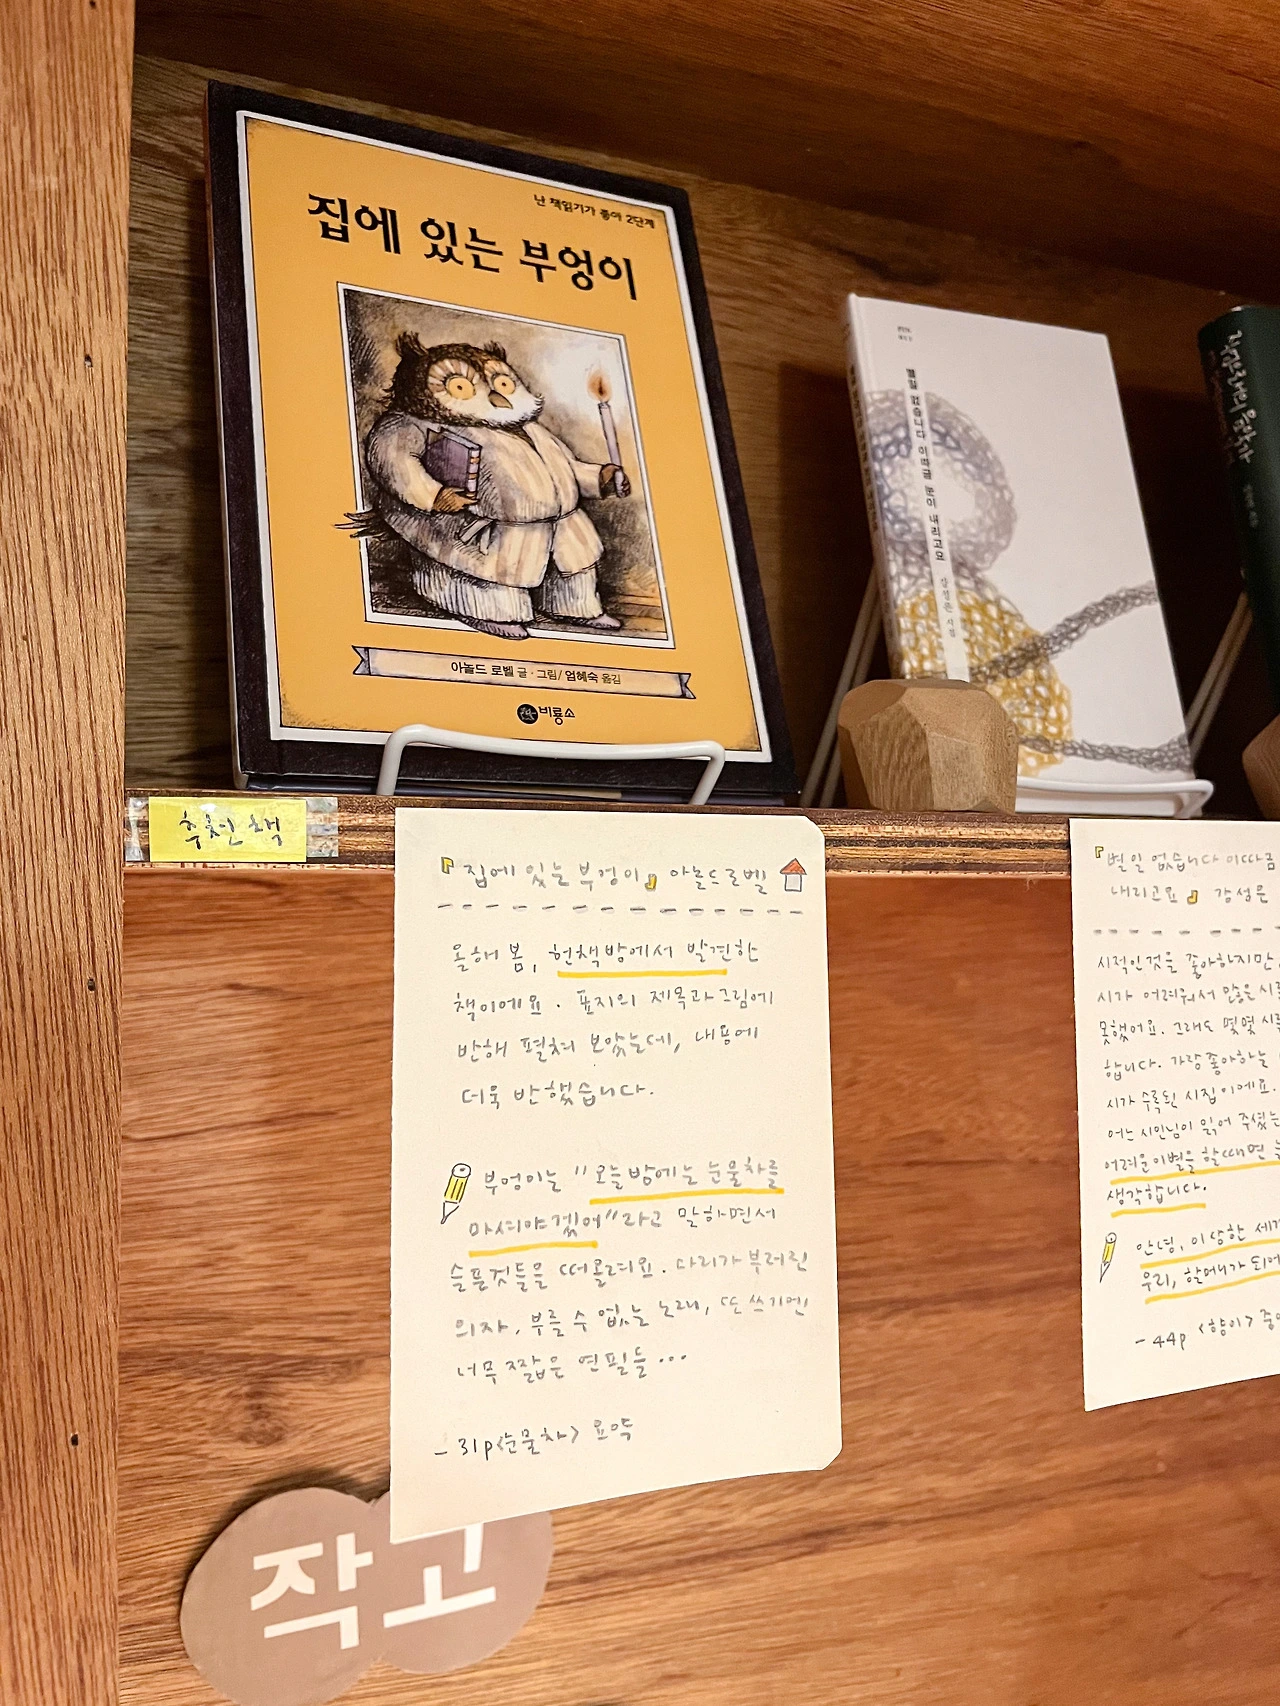 난 책읽기가 좋아 2단계
집에 있는 부엉이
아놀드 로벨 글·그림/엄혜숙 옮김
비룡소
별일 없습니다 이따금 눈이 내리고요
강성은 시집
추천 책
『집에 있는 부엉이』 아놀드로벨
올해 봄, 헌책방에서 발견한
책이에요. 표지의 제목과 그림에
반해 펼쳐 보았는데, 내용에
더욱 반했습니다.
부엉이는 "오늘밤에는 눈물차를
마셔야겠어"라고 말하면서
슬픈것들을 떠올려요. 다리가 부러진
의자, 부를 수 없는 노래, 또 쓰기엔
너무 짧은 연필들...
- 31p <눈물차> 요약
『별일 없습니다 이따금
내리고요』 강성은
시적인것을 좋아하지만
시가 어려워서 많은 시를
못했어요. 그래도 몇몇 시
합니다. 가장 좋아하는
시가 수록된 시집이에요.
어느 시인님이 읽어 주셨는
어려운 이별을 할때면
생각합니다.
안녕, 이상한 세계
우리, 할머니가 되어
- 44p <향이> 중에
작고